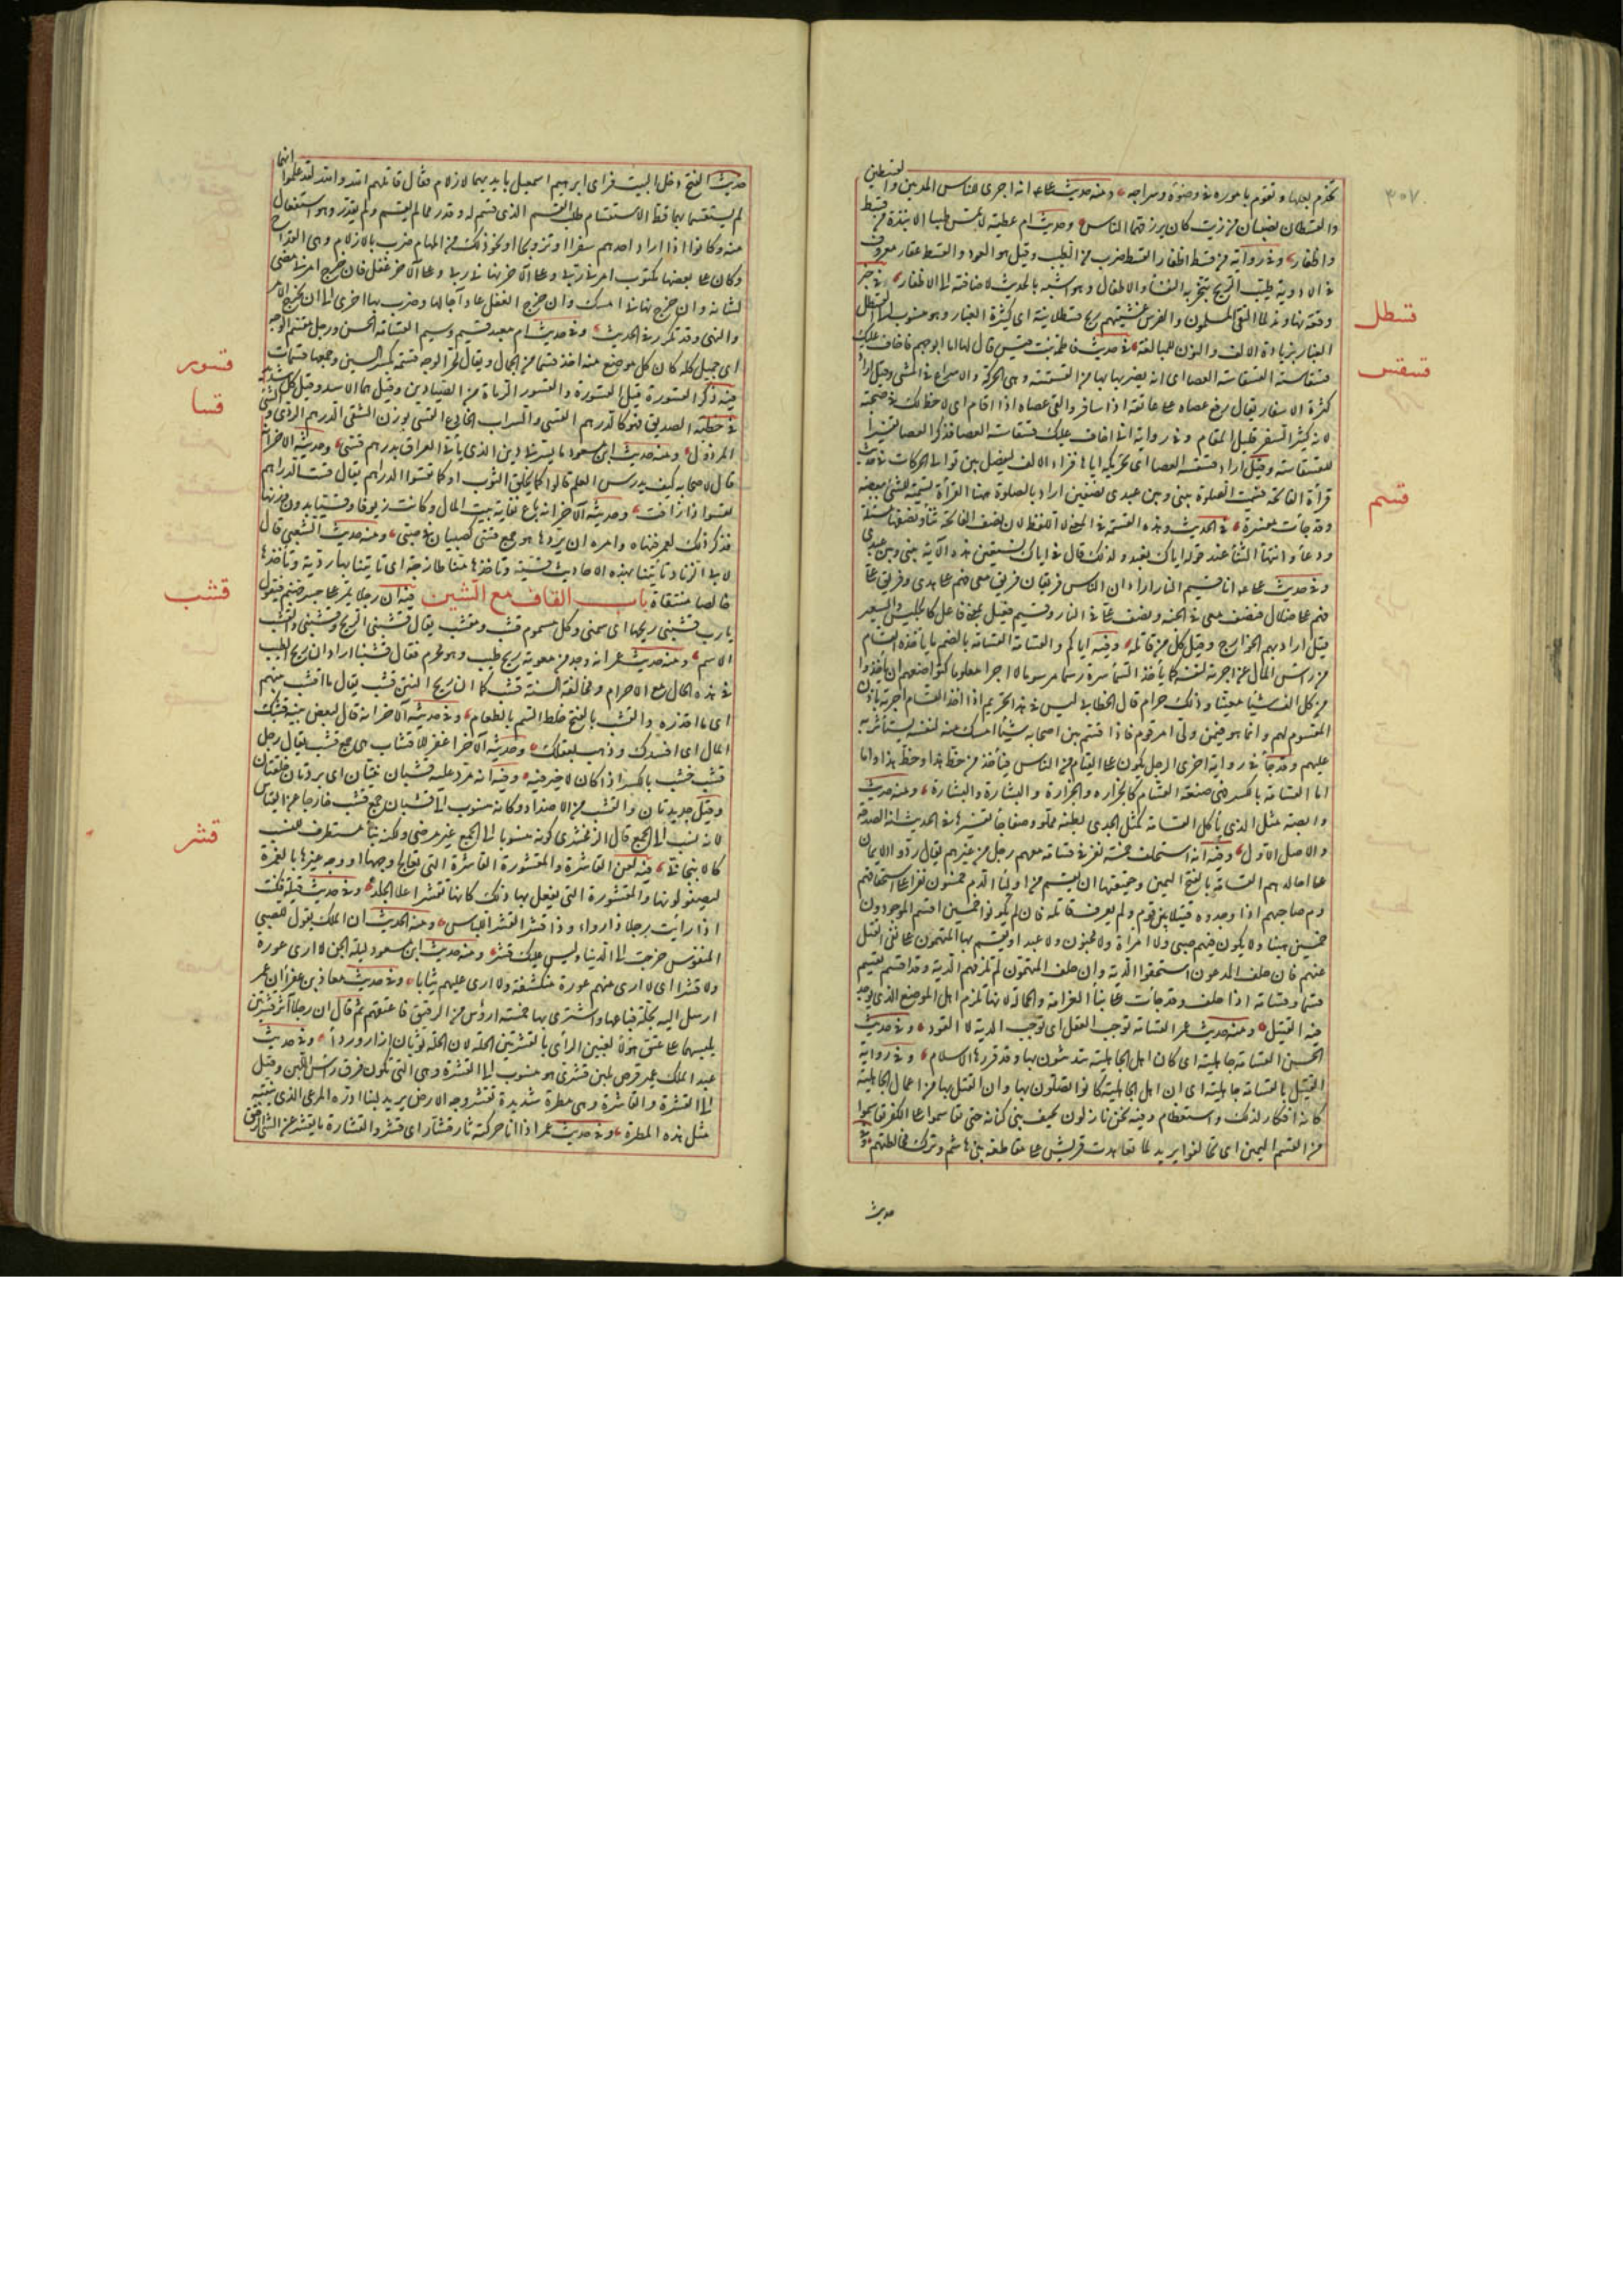 ٣٠٧
تخدم بعلها وتقوم بأموره في وضوئه وسراجه ومنه حديث علي انه اجرى للناس المديين والقسطين
والقسطان نصيبان من زيت كان يرزقهما الناس وحديث ام عطية لا تمس طيبا الا نبذة من قسط
واظفار وفي رواية من قسط اظفار القسط ضرب من الطيب وقيل هو العود والقسط عقار معروف
في الادوية طيب الريح تتبخر به النفساء والاطفال وهو اشبه بالحديث لاضافته الى الاظفار في خبر
قسطل
وقعة نهاوند لما التقى المسلمون والفرس غشيتهم ريح قسطلانية اى كثيرة الغبار وهو منسوب الى القسطل
الغبار بزيادة الالف والنون للمبالغة في حديث فاطمة بنت قيس قال لها اما ابو جهم فاخاف عليك
قسقس
قسقاسته القسقاسة العصا اى انه يضربها بها من القسقسة وهى الحركة والاسراع في المشى وقيل اراد
كثرة الاسفار يقال رفع عصاه على عاتقه اذا سافر والقى عصاه اذا اقام اى لا حظ لك في صحبته
لانه كثير السفر قليل المقام وفي رواية انى اخاف عليك قسقاسته العصا فذكر العصا تفسيرا
للقسقاسة وقيل اراد قسقسة العصا اى تحريكه اياها فزاد الالف ليفصل بين توالى الحركات في حديث
قسم
قرأة الفاتحة قسمت الصلوة بينى وبين عبدى نصفين اراد بالصلوة هنا القرأة تسمية للشئ ببعضه
وقد جاءت مفسرة في الحديث وهذه القسمة في المعنى لا اللفظ لان نصف الفاتحة ثناء ونصفها مسئلة
ودعاء وانتهاء الثناء عند قوله اياك نعبد ولذلك قال في اياك نستعين هذه الآية بينى وبين عبدى
وفي حديث على انا قسيم النار اراد ان الناس فريقان فريق معى فهم على هدى وفريق على
فهم على ضلال فنصف معى في الجنة ونصف على في النار وقسيم فعيل بمعنى فاعل كالجليس والسمير
قيل اراد بهم الخوارج وقيل كل من قاتله وفيه اياكم والقسامة القسامة بالضم ما يأخذه القسام
من رأس المال عن اجرته لنفسه كما يأخذ السماسرة رسما مرسوما لا اجرا معلوما كتواضعهم ان يأخذوا
من كل الف شيئا معينا وذلك حرام قال الخطابى ليس في هذا تحريم اذا اخذ القسام اجرته باذن
المقسوم لهم وانما هو فيمن ولى امر قوم فاذا قسم بين اصحابه شيئا امسك منه لنفسه يستأثر به
عليهم وقد جاء في رواية اخرى الرجل يكون على الفئام من الناس فيأخذ من حظ هذا وحظ هذا واما
اما القسامة بالكسر فهى صنعة القسام كالجزارة والجزارة والبشارة والبشارة ومنه حديث
وابصة مثل الذى يأكل القسامة كمثل الجدى بطنه مملو رضفا جاء تفسيرها في الحديث انها الصدقة
والاصل الاول وفيه انه استحلف خمسة نفر في قسامة معهم رجل من غيرهم فقال ردوا الايمان
على اجالدهم القسامة بالفتح اليمين وحقيقتها ان يقسم من اولياء الدم خمسون نفرا على استحقاقهم
دم صاحبهم اذا وجدوه قتيلا بين قوم ولم يعرف قاتله فان لم يكونوا خمسين اقسم الموجودون
خمسين يمينا ولا يكون فيهم صبى ولا امرأة ولا مجنون ولا عبد او يقسم بها المتهمون على نفى القتل
عنهم فان حلف المدعون استحقوا الدية وان حلف المتهمون لم تلزمهم الدية وقد اقسم يقسم
قسما وقسامة اذا حلف وقد جاءت على بناء الغرامة والحمالة لانها تلزم اهل الموضع الذى يوجد
فيه القتيل ومنه حديث عمر القسامة توجب العقل اى توجب الدية لا القود وفي حديث
الحسن القسامة جاهلية اى كان اهل الجاهلية يتدينون بها وقد قررها الاسلام وفي رواية
القتل بالقسامة جاهلية اى ان اهل الجاهلية كانوا يقتلون بها وان القتل بها من اعمال الجاهلية
كانه انكار لذلك واستعظام وفيه نحن نازلون بخيف بنى كنانة حتى تقاسموا على الكفر تقاسموا
من القسم اليمين اى تحالفوا يريد لما تعاهدت قريش على مقاطعة بنى هاشم وترك مخالطتهم وفي
حديث
حديث الفتح دخل البيت فراى ابرهيم اسمعيل بايديهما الازلام فقال قاتلهم الله والله لقد علموا انهما
لم يستقسما بها قط الاستقسام طلب القسم الذى قسم له وقدر مما لم يقسم ولم يقدر وهو استفعال
منه وكانوا اذا اراد احدهم سفرا او تزويجا او نحو ذلك من المهام ضرب بالازلام وهى القداح
وكان على بعضها مكتوب امرنى ربى وعلى الآخر نهانى ربى وعلى الآخر غفل فان خرج امرنى مضى
لشانه وان خرج نهانى امسك وان خرج الغفل عاد اجالها وضرب بها اخرى الى ان يخرج الامر
والنهى وقد تكرر في الحديث وفي حديث ام معبد قسيم وسيم القسامة الحسن ورجل مقسم الوجه
قسور
اى جميل كله كان كل موضع منه اخذ قسما من الجمال ويقال لحر الوجه قسمة بكسر السين وجمعها قسمات
فيه ذكر القسورة قيل القسورة والقسور الرماة من الصيادين وقيل هما الاسد وقيل كل شديد
قسا
في خطبة الصديق فهو كالدرهم القسى والسراب الخادع القسى بوزن الشقى الدرهم الردى والشئ
المرذول ومنه حديث ابن مسعود ما يسرنى دين الذى يأتى العراف بدرهم قسى وحديثه الآخر انه
قال لاصحابه كيف يدرس العلم قالوا كما يخلق الثوب او كما تقسوا الدراهم يقال قست الدراهم
تقسوا اذا زافت وحديثه الآخر انه باع نفاية بيت المال وكانت زيوفا وقسيانا بدون وزنها
فذكر ذلك لعمر فنهاه وامره ان يردها هو جمع قسى كصبيان في صبى ومنه حديث الشعبى قال
لابى الزناد تأتينا بهذه الاحاديث قسية وتأخذها منا طازجة اى تأتينا بها ردية وتأخذها
قشب
خالصة منتقاة باب القاف مع الشين فيه ان رجلا يمر على جسر جهنم فيقول
يا رب قشبنى ريحها اى سمنى وكل مسموم قشيب ومقشب يقال قشبتنى الريح وقشبتنى والقشب
الاسم ومنه حديث عمر انه وجد من معوية ريح طيب وهو محرم فقال من قشبنا اراد ان ريح الطيب
في هذه الحال مع الاحرام ومخالفة السنة قشب كما ان ريح النتن قشب يقال ما اقشب بيتهم
اى ما اقذره والقشب بالفتح خلط السم بالطعام وفي حديثه الآخر انه قال لبعض بنيه قشبك
المال اى افسدك وذهب بعقلك وحديثه الآخر اغفر للاقشاب هى جمع قشب يقال رجل
قشب خشب بالكسر اذا كان لا خير فيه وفيه انه مر وعليه قشبانيتان اى بردتان خلقتان
وقيل جديدتان والقشيب من الاضداد وكانه منسوب الى قشبان جمع قشيب خارجا عن القياس
لانه نسب الى الجمع قال الزمخشرى كونه منسوبا الى الجمع غير مرضى ولكنه بناء مستطرف للنسب
قشر
كالانبجانى فيه لعن القاشرة والمقشورة القاشرة التى تعالج وجهها او وجه غيرها بالغمرة
ليصفو لونها والمقشورة التى يفعل بها ذلك كانها تقشر اعلى الجلد وفي حديث قيلة فكنت
اذا رأيت رجلا ذا رواء وذا قشر القشر اللباس ومنه الحديث ان الملك يقول للصبى
المنفوس خرجت الى الدنيا وليس عليك قشر ومنه حديث ابن مسعود ليلة الجن لا ارى عورة
ولا قشرا اى لا ارى منهم عورة منكشفة ولا ارى عليهم ثيابا وفي حديث معاذ بن عفراء ان عمر
ارسل اليه بحلة فباعها واشترى بها خمسة ارؤس من الرقيق فاعتقهم ثم قال ان رجلا آثر قشرتين
يلبسهما على عتق هؤلاء لغبين الرأى بالقشرتين الحلة لان الحلة ثوبان ازار ورداء وفي حديث
عبد الملك بن عمير قرص بلبن قشرى هو منسوب الى القشرة وهى التى تكون فوق رأس اللبن وقيل
الى القشرة والقاشرة وهى مطرة شديدة تقشر وجه الارض يريد لبنا ادره المرعى الذى ينبته
مثل هذه المطرة وفي حديث عمر اذا انا حركته ثار قشار اى قشر والقشارة ما يقشر عن الشئ الرقيق